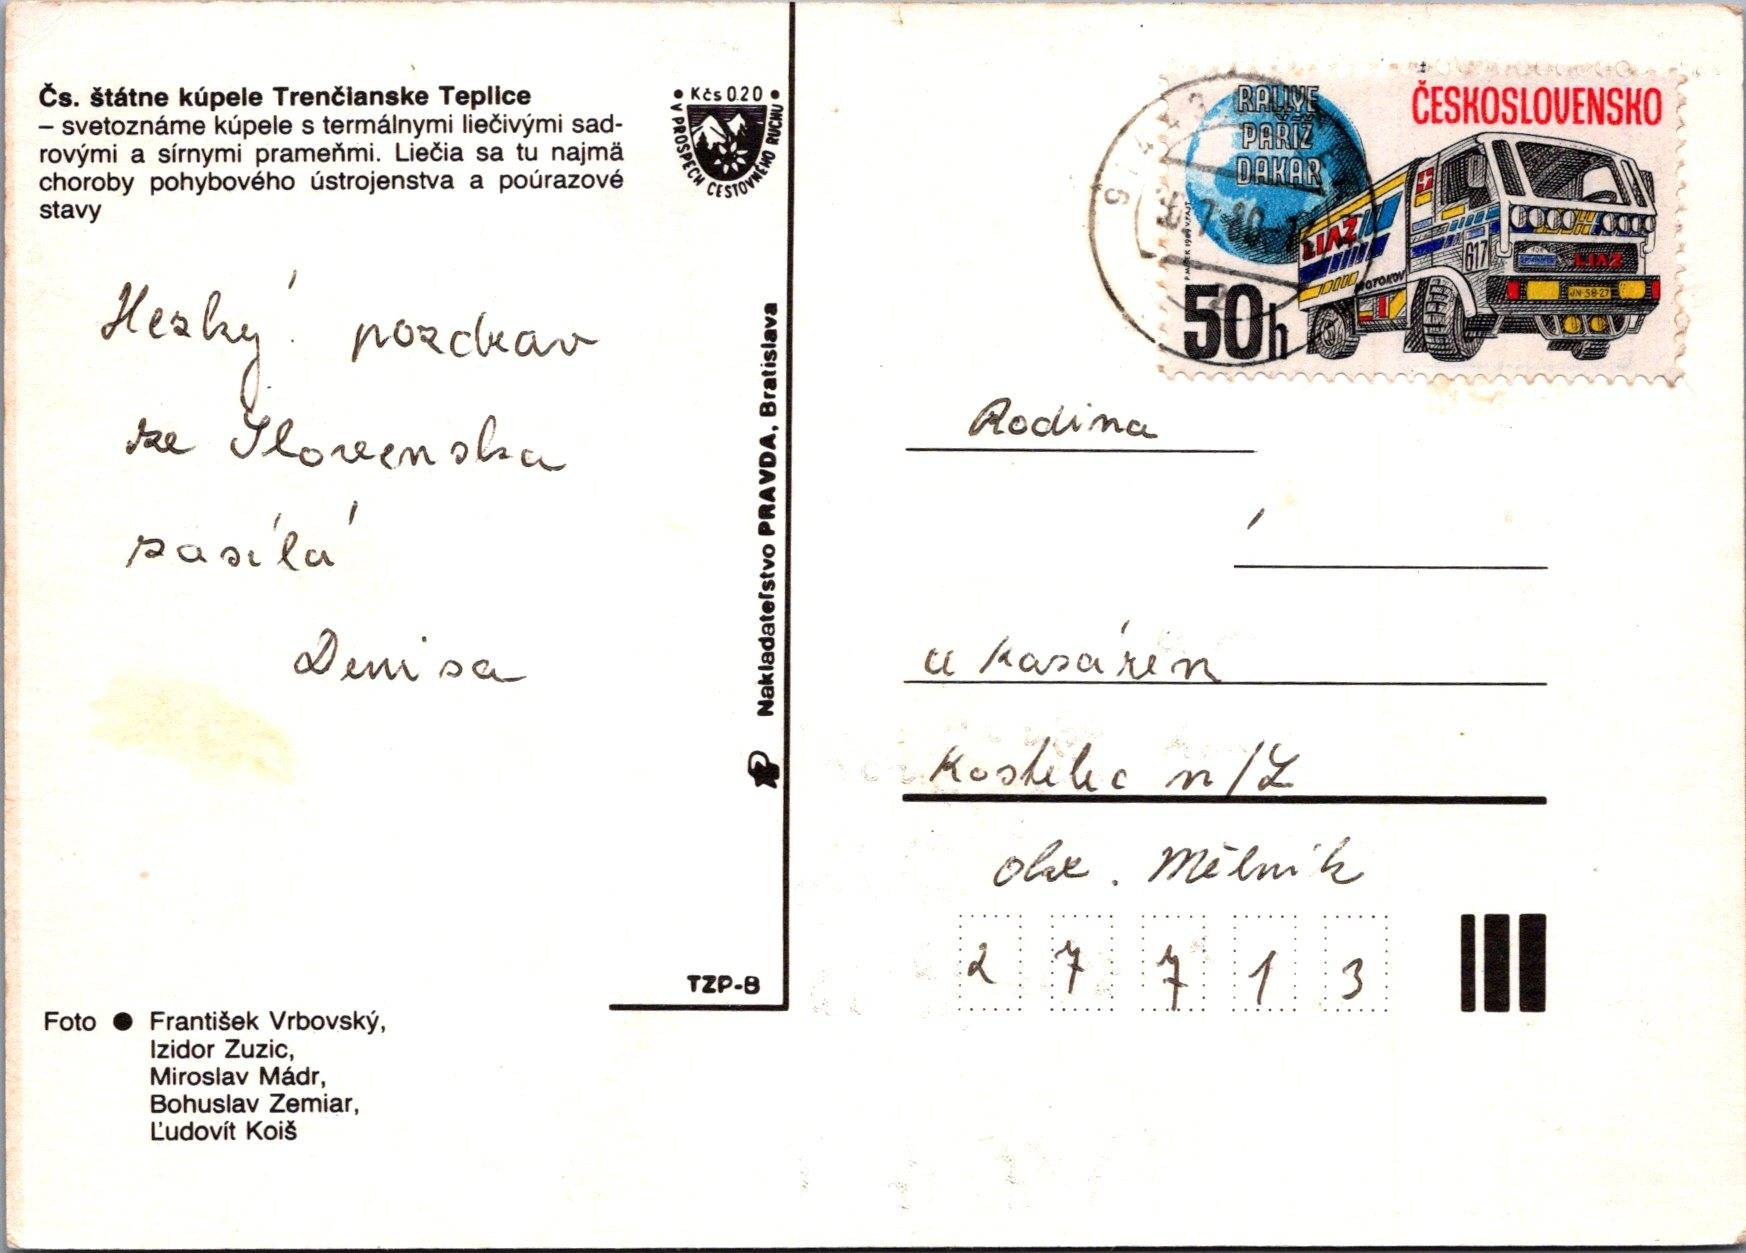 Čs. štátne kúpele Trenčianske Teplice
– svetoznáme kúpele s termálnymi liečivými sad-
rovými a sírnymi prameňmi. Liečia sa tu najmä
choroby pohybového ústrojenstva a poúrazové
stavy
• Kčs 0.20 •
V PROSPECH CESTOVNÉHO RUCHU
Hezký pozdrav
ze Slovenska
zasílá
Denisa
Nakladateľstvo PRAVDA, Bratislava
TZP-B
Foto ● František Vrbovský,
Izidor Zuzic,
Miroslav Mádr,
Bohuslav Zemiar,
Ľudovít Koiš
RALLYE
PAŘÍŽ
DAKAR
ČESKOSLOVENSKO
LIAZ
617
LIAZ
MOTOKOV
JN 58-27
50h
Rodina
u kasáren
Kostelec n/L
okr. Mělník
2 7 7 1 3